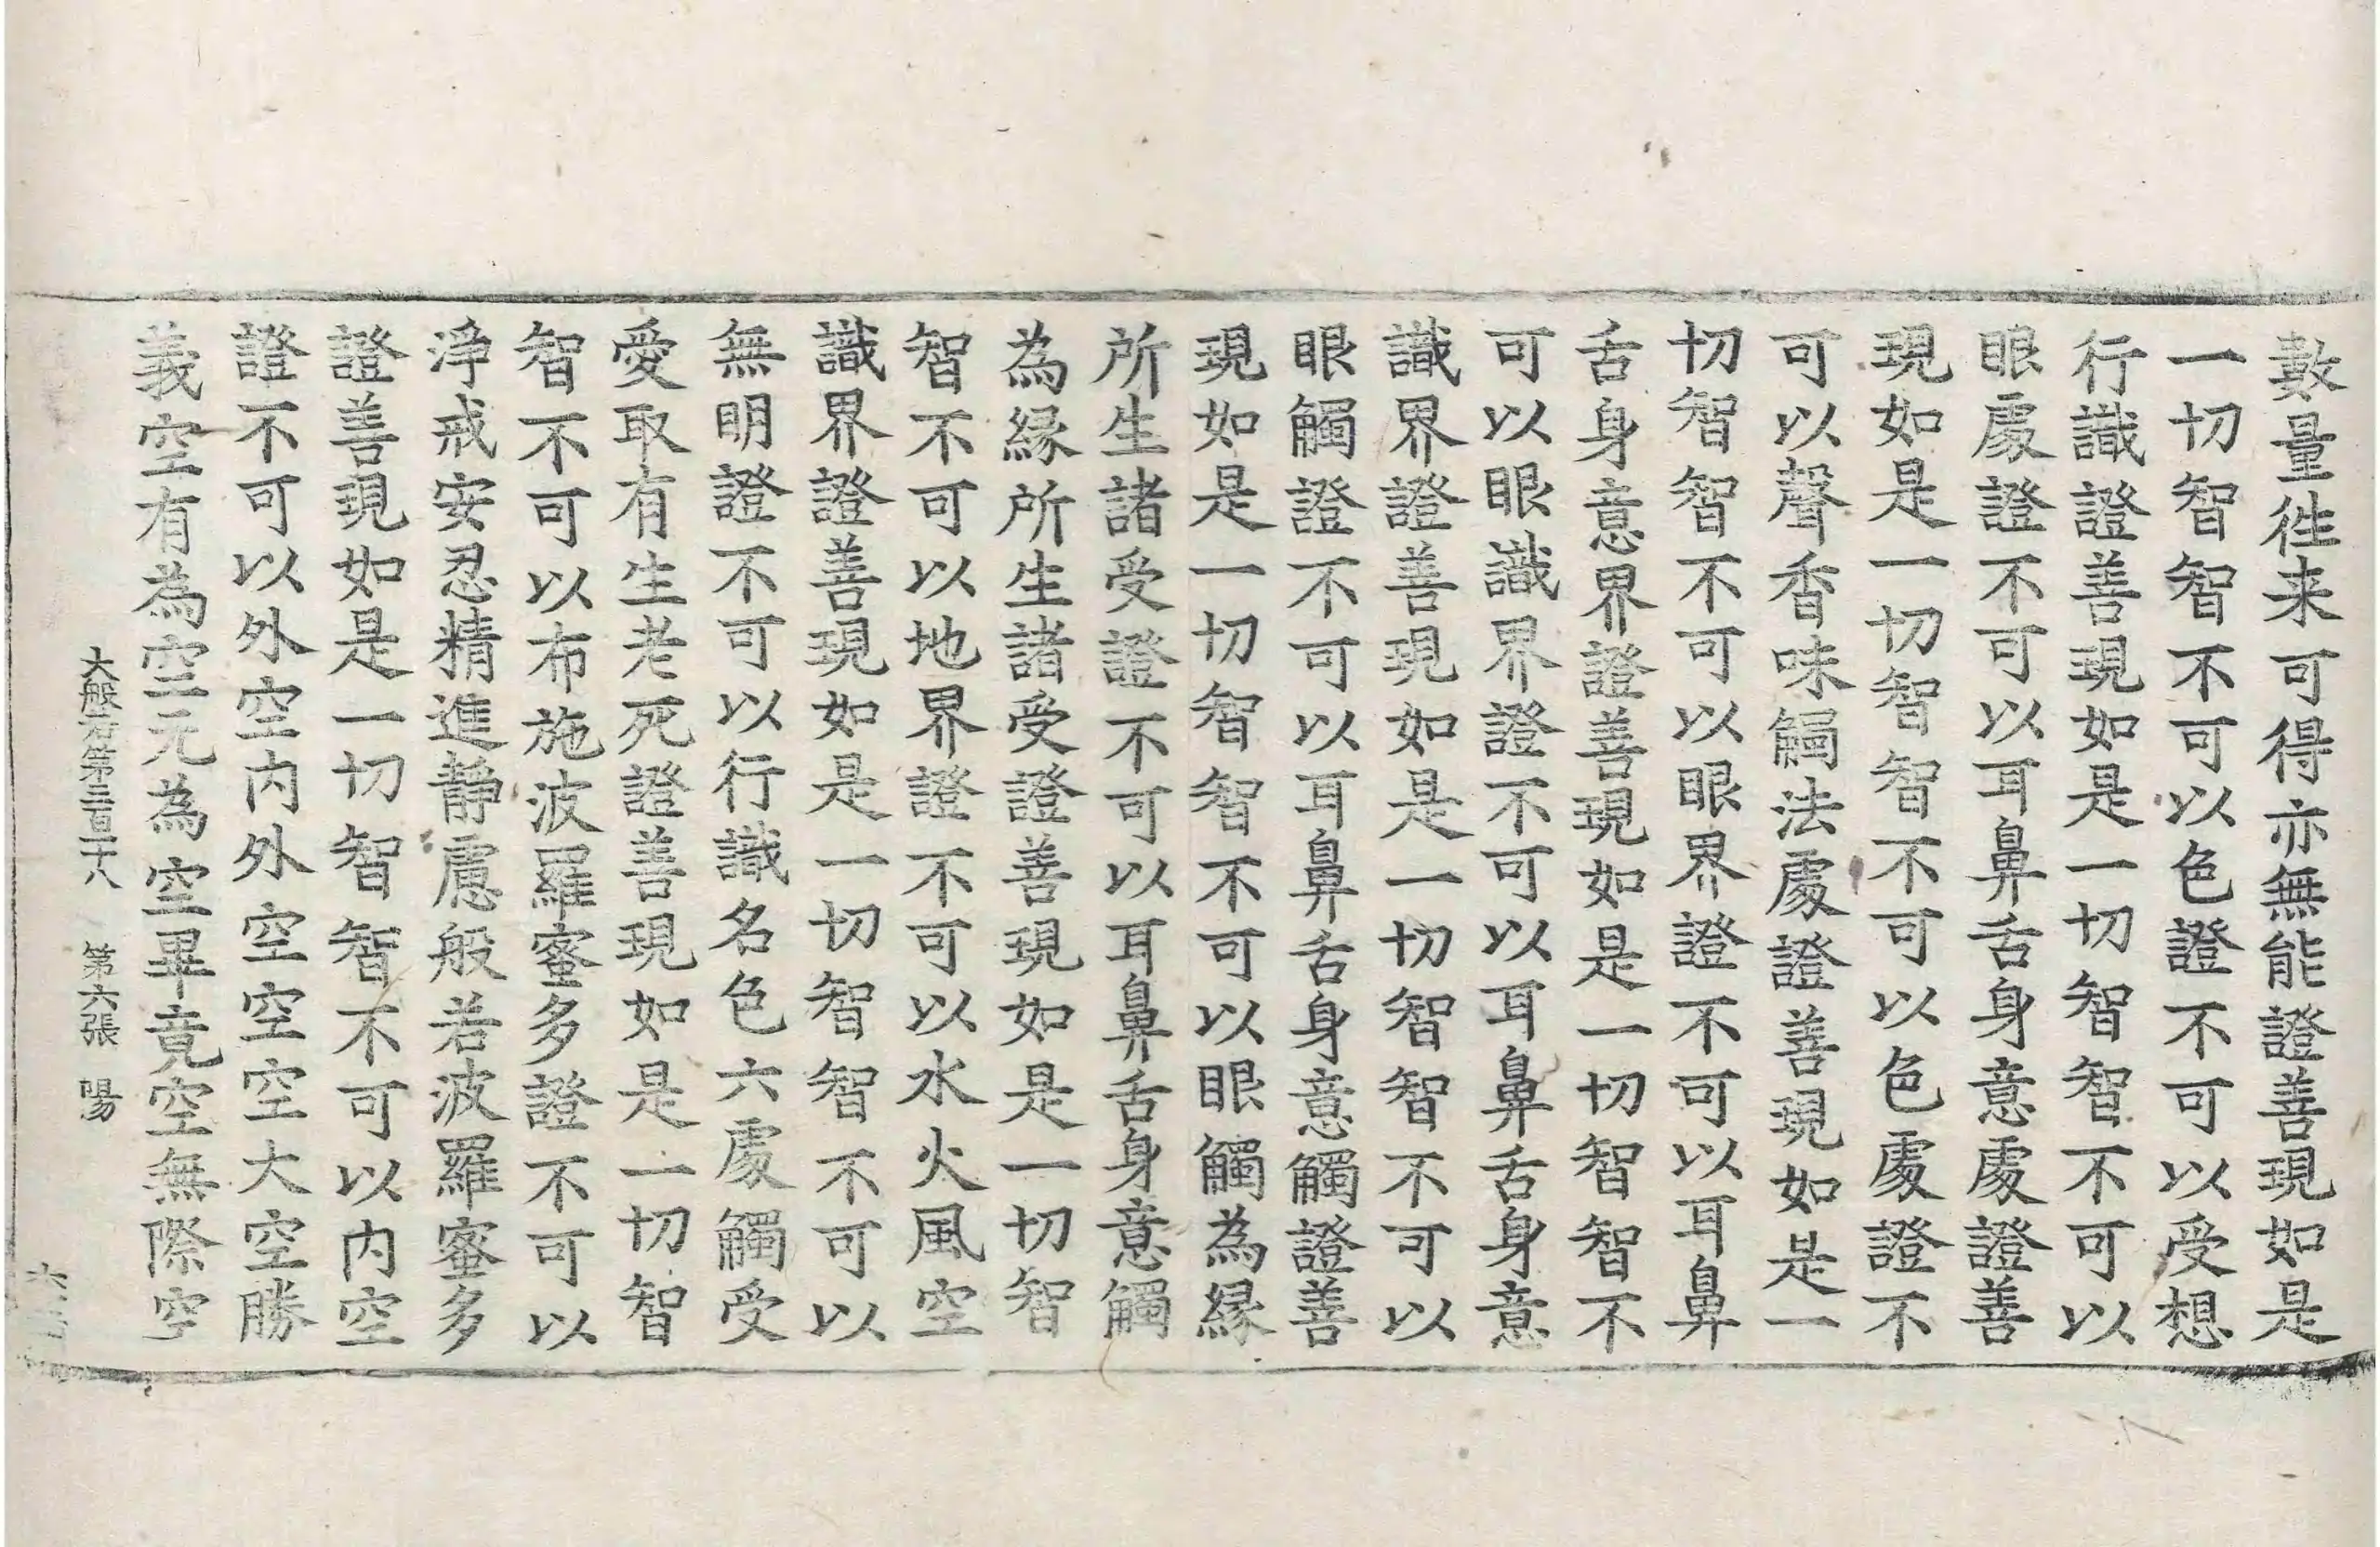 數量徃来可得亦無能證善現如是
一切智智不可以色證不可以受想
行識證善現如是一切智智不可以
眼處證不可以耳鼻舌身意處證善
現如是一切智智不可以色處證不
可以聲香味觸法處證善現如是一
切智智不可以眼界證不可以耳鼻
舌身意界證善現如是一切智智不
可以眼識界證不可以耳鼻舌身意
識界證善現如是一切智智不可以
眼觸證不可以耳鼻舌身意觸證善
現如是一切智智不可以眼觸為緣
所生諸受證不可以耳鼻舌身意觸
為緣所生諸受證善現如是一切智
智不可以地界證不可以水火風空
識界證善現如是一切智智不可以
無明證不可以行識名色六處觸受
愛取有生老死證善現如是一切智
智不可以布施波羅蜜多證不可以
淨戒安忍精進靜慮般若波羅蜜多
證善現如是一切智智不可以內空
證不可以外空內外空空空大空勝
義空有為空无為空畢竟空無際空
大般若第三百二十八 第六張 陽